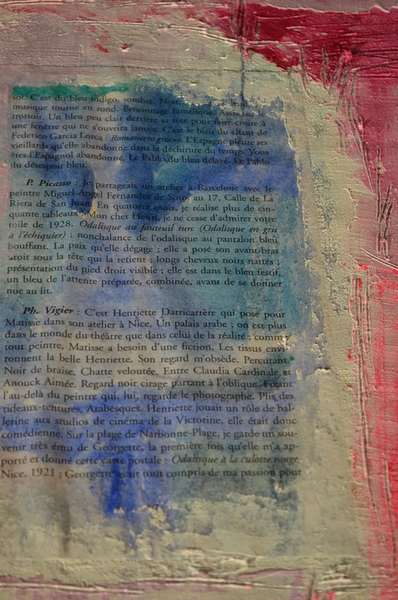 soi. C'est du bleu indigo, sombre.
musique tourne en rond. Personnage
trottoir. Un bleu pas clair derrière sa tête pour faire croire à
une fenêtre qui ne s'ouvrira jamais. C'est le bleu du gitan de
Federico Garcia Lorca : Romancero gitano. L'Espagne pleure ses
vieillards qu'elle abandonne dans la déchirure du temps. Vous
êtes l'Espagnol abandonné. Le Pablo du bleu délavé. Le Pablo
du désespoir bleu.
P. Picasso : Je partageais un atelier à Barcelone avec le
peintre Miguel-Angel Fernandez de Soto au 17, Calle de La
Riera de San Juan. En quatorze mois, je réalise plus de cin-
quante tableaux. Mon cher Henri, je ne cesse d'admirer votre
toile de 1928. Odalisque au fauteuil turc (Odalisque en gris
à l'échiquier) : nonchalance de l'odalisque au pantalon bleu
bouffant. La paix qu'elle dégage ; elle a posé son avant-bras
droit sous la tête qui la retient ; longs cheveux noirs nattés ;
présentation du pied droit visible ; elle est dans le bleu festif,
un bleu de l'attente préparée, combinée, avant de se donner
nue au lit.
Ph. Vigier : C'est Henriette Darricarrère qui pose pour
Matisse dans son atelier à Nice. Un palais arabe ; on est plus
dans le monde du théâtre que dans celui de la réalité ; comme
tout peintre, Matisse a besoin d'une fiction. Les tissus envi-
ronnent la belle Henriette. Son regard m'obsède. Percutant.
Noir de braise. Chatte veloutée. Entre Claudia Cardinale et
Anouck Aimée. Regard noir cirage partant à l'oblique. Fixant
l'au-delà du peintre qui, lui, regarde le photographe. Plis des
rideaux-tentures. Arabesques. Henriette jouait un rôle de bal-
lerine aux studios de cinéma de la Victorine, elle était donc
comédienne. Sur la plage de Narbonne-Plage, je garde un sou-
venir très ému de Georgette, la première fois qu'elle m'a ap-
porté et donné cette carte postale : Odalisque à la culotte rouge.
Nice, 1921 ; Georgette avait tout compris de ma passion pour